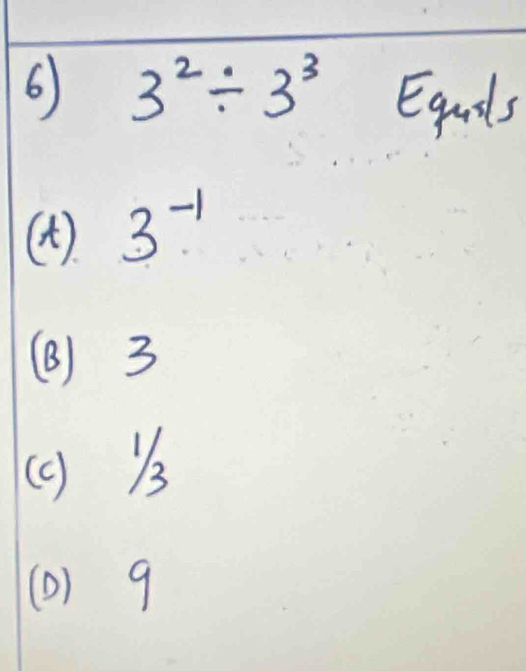 6) 3² ÷ 3³ Equals
(A) 3⁻¹
(B) 3
(C) 1/3
(D) 9